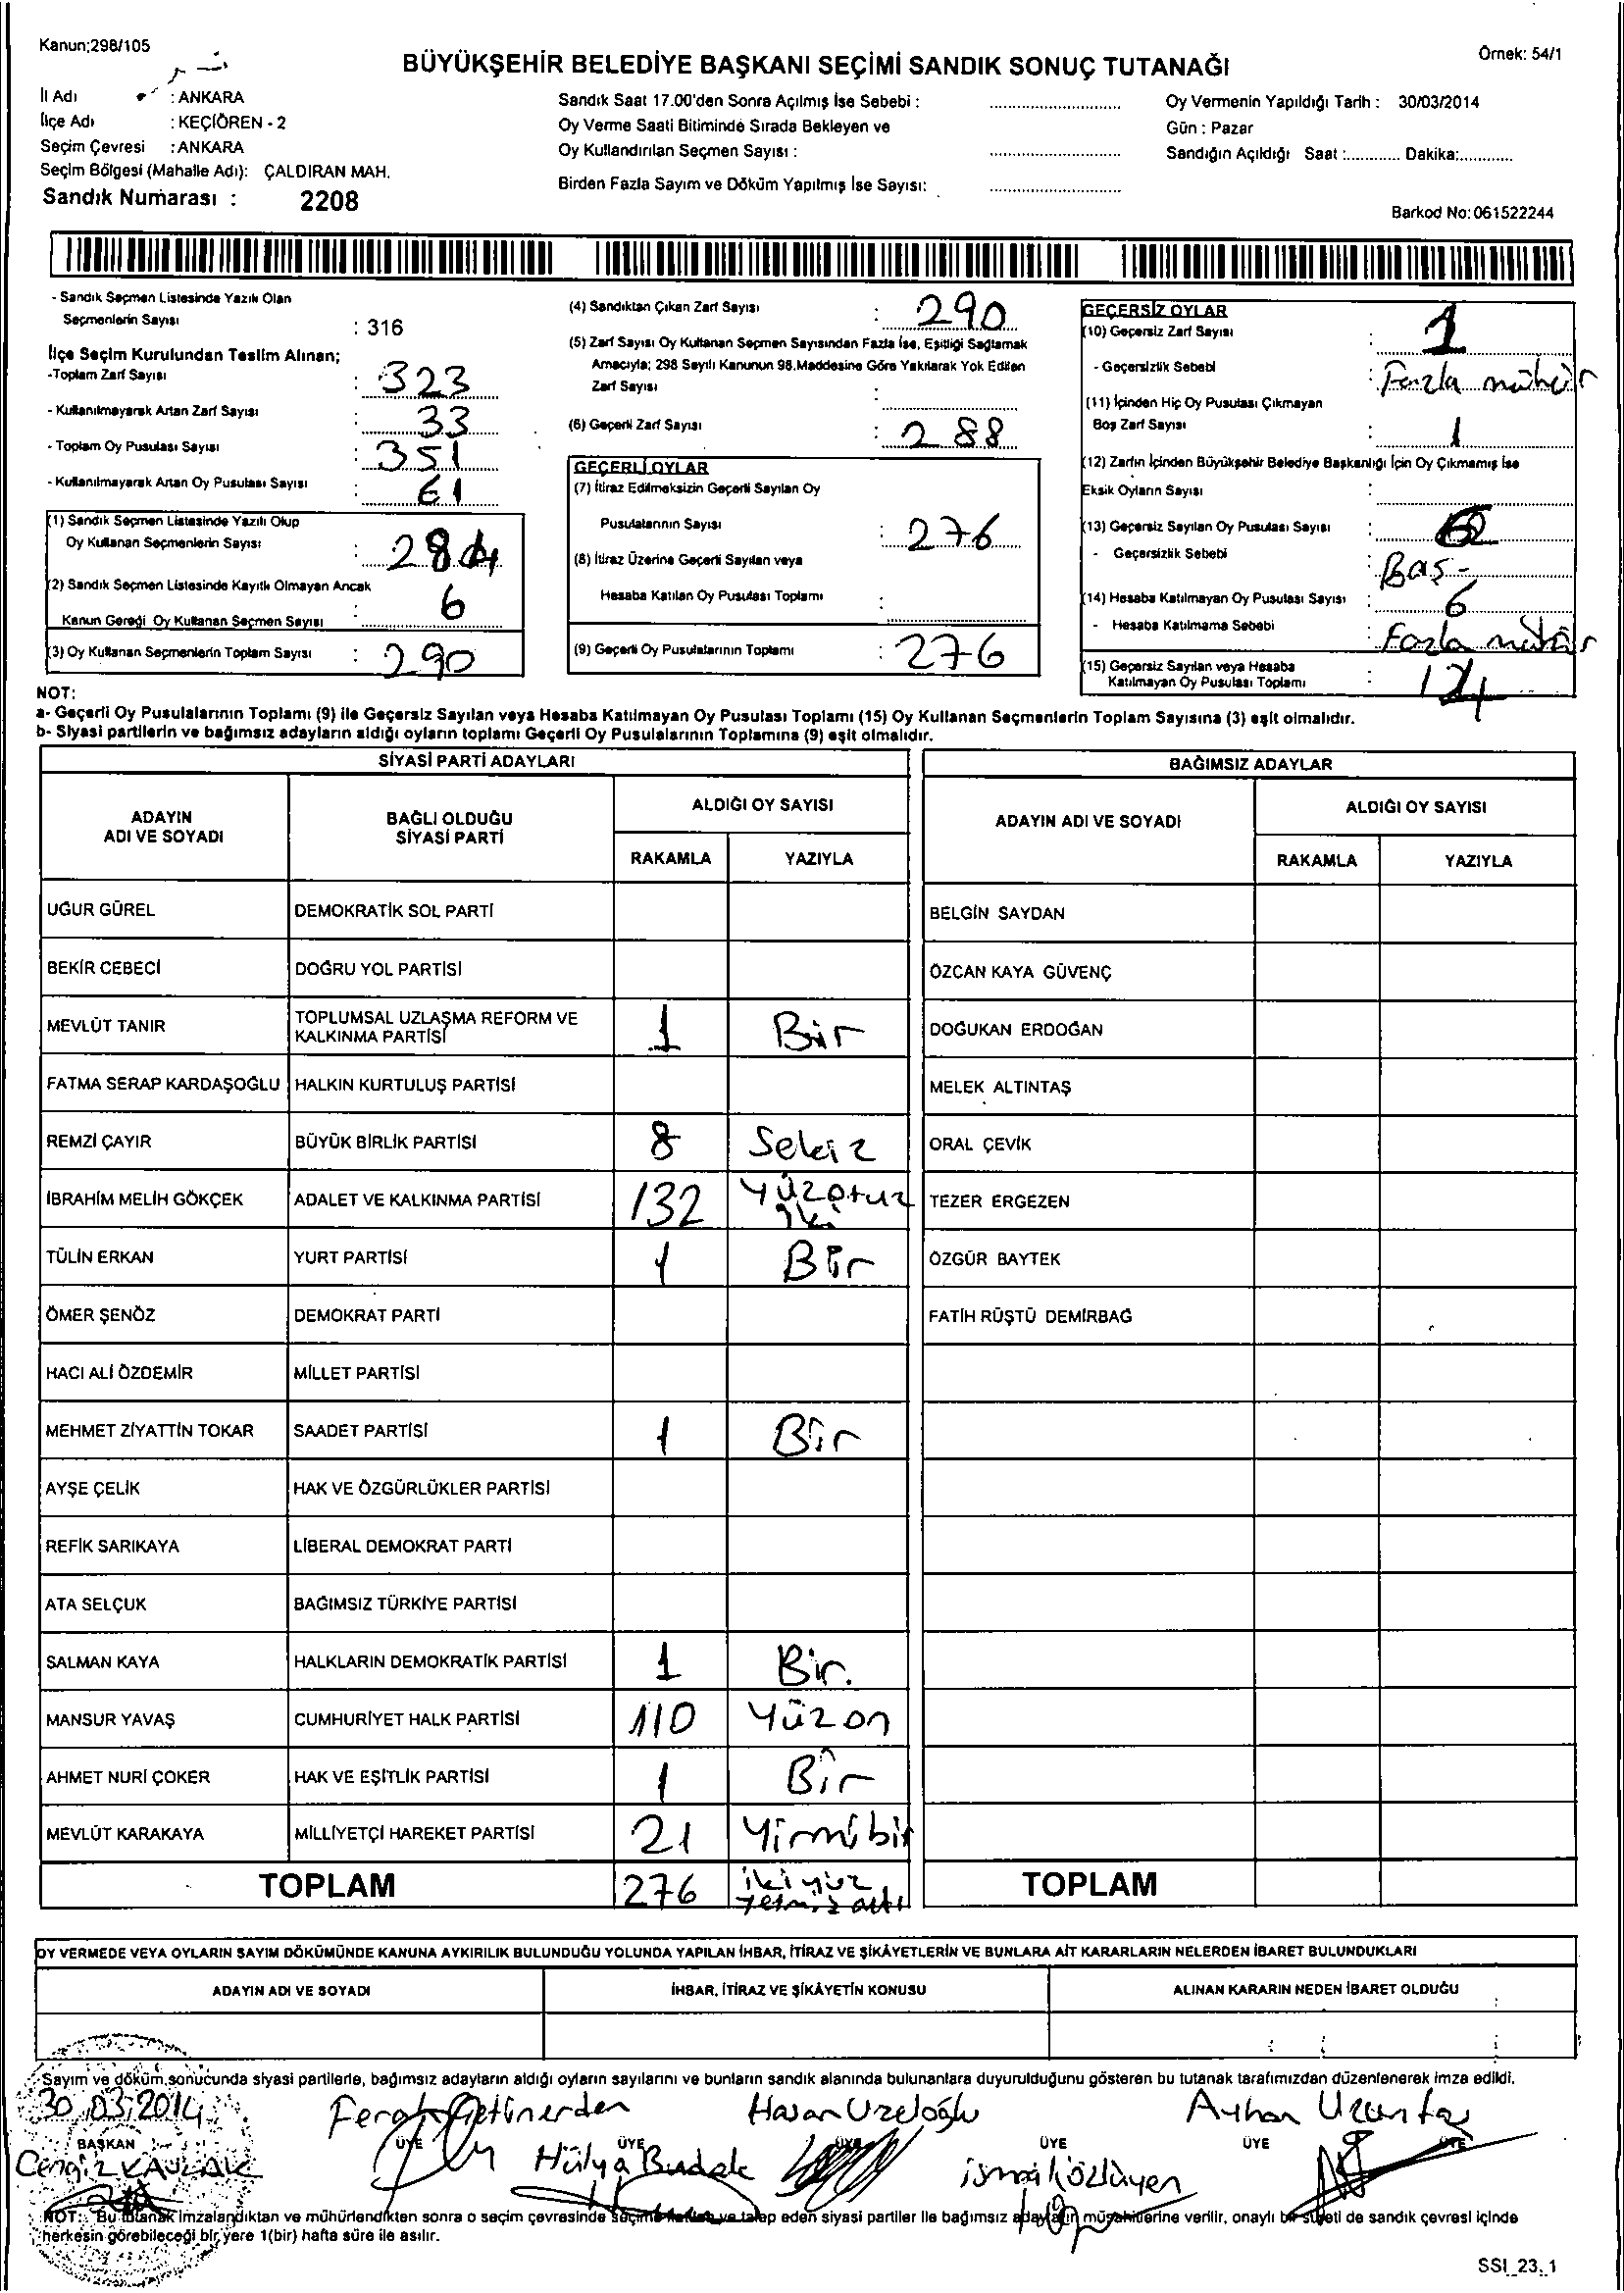 Kanun;298/105
BÜYÜKŞEHİR BELEDİYE BAŞKANI SEÇİMİ SANDIK SONUÇ TUTANAĞI
Örnek: 54/1
İl Adı : ANKARA
İlçe Adı : KEÇİÖREN - 2
Seçim Çevresi : ANKARA
Seçim Bölgesi (Mahalle Adı): ÇALDIRAN MAH.
Sandık Numarası : 2208
Sandık Saat 17.00'den Sonra Açılmış İse Sebebi :
Oy Verme Saati Bitiminde Sırada Bekleyen ve
Oy Kullandırılan Seçmen Sayısı :
Birden Fazla Sayım ve Döküm Yapılmış İse Sayısı:
Oy Vermenin Yapıldığı Tarih : 30/03/2014
Gün : Pazar
Sandığın Açıldığı Saat :............ Dakika:............
Barkod No: 061522244
- Sandık Seçmen Listesinde Yazılı Olan
Seçmenlerin Sayısı : 316
İlçe Seçim Kurulundan Teslim Alınan;
-Toplam Zarf Sayısı : 323
- Kullanılmayarak Artan Zarf Sayısı : 33
- Toplam Oy Pusulası Sayısı : 351
- Kullanılmayarak Artan Oy Pusulası Sayısı : 61
(1) Sandık Seçmen Listesinde Yazılı Olup
Oy Kullanan Seçmenlerin Sayısı : 284
(2) Sandık Seçmen Listesinde Kayıtlı Olmayan Ancak
Kanun Gereği Oy Kullanan Seçmen Sayısı : 6
(3) Oy Kullanan Seçmenlerin Toplam Sayısı : 290
(4) Sandıktan Çıkan Zarf Sayısı : 290
(5) Zarf Sayısı Oy Kullanan Seçmen Sayısından Fazla İse, Eşitliği Sağlamak
Amacıyla; 298 Sayılı Kanunun 98.Maddesine Göre Yakılarak Yok Edilen
Zarf Sayısı :
(6) Geçerli Zarf Sayısı : 288
GEÇERLİ OYLAR
(7) İtiraz Edilmeksizin Geçerli Sayılan Oy
Pusulalarının Sayısı : 276
(8) İtiraz Üzerine Geçerli Sayılan veya
Hesaba Katılan Oy Pusulası Toplamı :
(9) Geçerli Oy Pusulalarının Toplamı : 276
GEÇERSİZ OYLAR
(10) Geçersiz Zarf Sayısı : 1
- Geçersizlik Sebebi : Fazla mühür
(11) İçinden Hiç Oy Pusulası Çıkmayan
Boş Zarf Sayısı : 1
(12) Zarfın İçinden Büyükşehir Belediye Başkanlığı İçin Oy Çıkmamış İse
Eksik Oyların Sayısı :
(13) Geçersiz Sayılan Oy Pusulası Sayısı :
- Geçersizlik Sebebi : Boş -
(14) Hesaba Katılmayan Oy Pusulası Sayısı : 6
- Hesaba Katılmama Sebebi : Fazla mühür
(15) Geçersiz Sayılan veya Hesaba
Katılmayan Oy Pusulası Toplamı :
NOT:
a- Geçerli Oy Pusulalarının Toplamı (9) ile Geçersiz Sayılan veya Hesaba Katılmayan Oy Pusulası Toplamı (15) Oy Kullanan Seçmenlerin Toplam Sayısına (3) eşit olmalıdır.
b- Siyasi partilerin ve bağımsız adayların aldığı oyların toplamı Geçerli Oy Pusulalarının Toplamına (9) eşit olmalıdır.
SİYASİ PARTİ ADAYLARI
ADAYIN ADI VE SOYADI BAĞLI OLDUĞU SİYASİ PARTİ ALDIĞI OY SAYISI
RAKAMLA YAZIYLA
UĞUR GÜREL DEMOKRATİK SOL PARTİ
BEKİR CEBECİ DOĞRU YOL PARTİSİ
MEVLÜT TANIR TOPLUMSAL UZLAŞMA REFORM VE KALKINMA PARTİSİ 1 Bir
FATMA SERAP KARDAŞOĞLU HALKIN KURTULUŞ PARTİSİ
REMZİ ÇAYIR BÜYÜK BİRLİK PARTİSİ 8 Sekiz
İBRAHİM MELİH GÖKÇEK ADALET VE KALKINMA PARTİSİ 132 Yüzotuz iki
TÜLİN ERKAN YURT PARTİSİ 1 Bir
ÖMER ŞENÖZ DEMOKRAT PARTİ
HACI ALİ ÖZDEMİR MİLLET PARTİSİ
MEHMET ZİYATTİN TOKAR SAADET PARTİSİ 1 Bir
AYŞE ÇELİK HAK VE ÖZGÜRLÜKLER PARTİSİ
REFİK SARIKAYA LİBERAL DEMOKRAT PARTİ
ATA SELÇUK BAĞIMSIZ TÜRKİYE PARTİSİ
SALMAN KAYA HALKLARIN DEMOKRATİK PARTİSİ 1 Bir.
MANSUR YAVAŞ CUMHURİYET HALK PARTİSİ 110 Yüzon
AHMET NURİ ÇOKER HAK VE EŞİTLİK PARTİSİ 1 Bir
MEVLÜT KARAKAYA MİLLİYETÇİ HAREKET PARTİSİ 21 Yirmibir
TOPLAM 276 ikiyüz yetmiş altı
BAĞIMSIZ ADAYLAR
ADAYIN ADI VE SOYADI ALDIĞI OY SAYISI
RAKAMLA YAZIYLA
BELGİN SAYDAN
ÖZCAN KAYA GÜVENÇ
DOĞUKAN ERDOĞAN
MELEK ALTINTAŞ
ORAL ÇEVİK
TEZER ERGEZEN
ÖZGÜR BAYTEK
FATİH RÜŞTÜ DEMİRBAĞ
TOPLAM
OY VERMEDE VEYA OYLARIN SAYIM DÖKÜMÜNDE KANUNA AYKIRILIK BULUNDUĞU YOLUNDA YAPILAN İHBAR, İTİRAZ VE ŞİKÂYETLERİN VE BUNLARA AİT KARARLARIN NELERDEN İBARET BULUNDUKLARI
ADAYIN ADI VE SOYADI İHBAR, İTİRAZ VE ŞİKÂYETİN KONUSU ALINAN KARARIN NEDEN İBARET OLDUĞU
Sayım ve döküm sonucunda siyasi partilerle, bağımsız adayların aldığı oyların sayılarını ve bunların sandık alanında bulunanlara duyurulduğunu gösteren bu tutanak tarafımızdan düzenlenerek imza edildi.
30.03.2014
Hasan Uzeloğlu
Ayhan
BAŞKAN ÜYE ÜYE ÜYE ÜYE ÜYE ÜYE
Cengiz
Hülya Budak
ismail
NOT: Bu tutanak imzalandıktan ve mühürlendikten sonra o seçim çevresinde seçime katılan ve talep eden siyasi partiler ile bağımsız adayların müşahitlerine verilir, onaylı bir sureti de sandık çevresi içinde
herkesin görebileceği bir yere 1(bir) hafta süre ile asılır.
SSİ_23_1